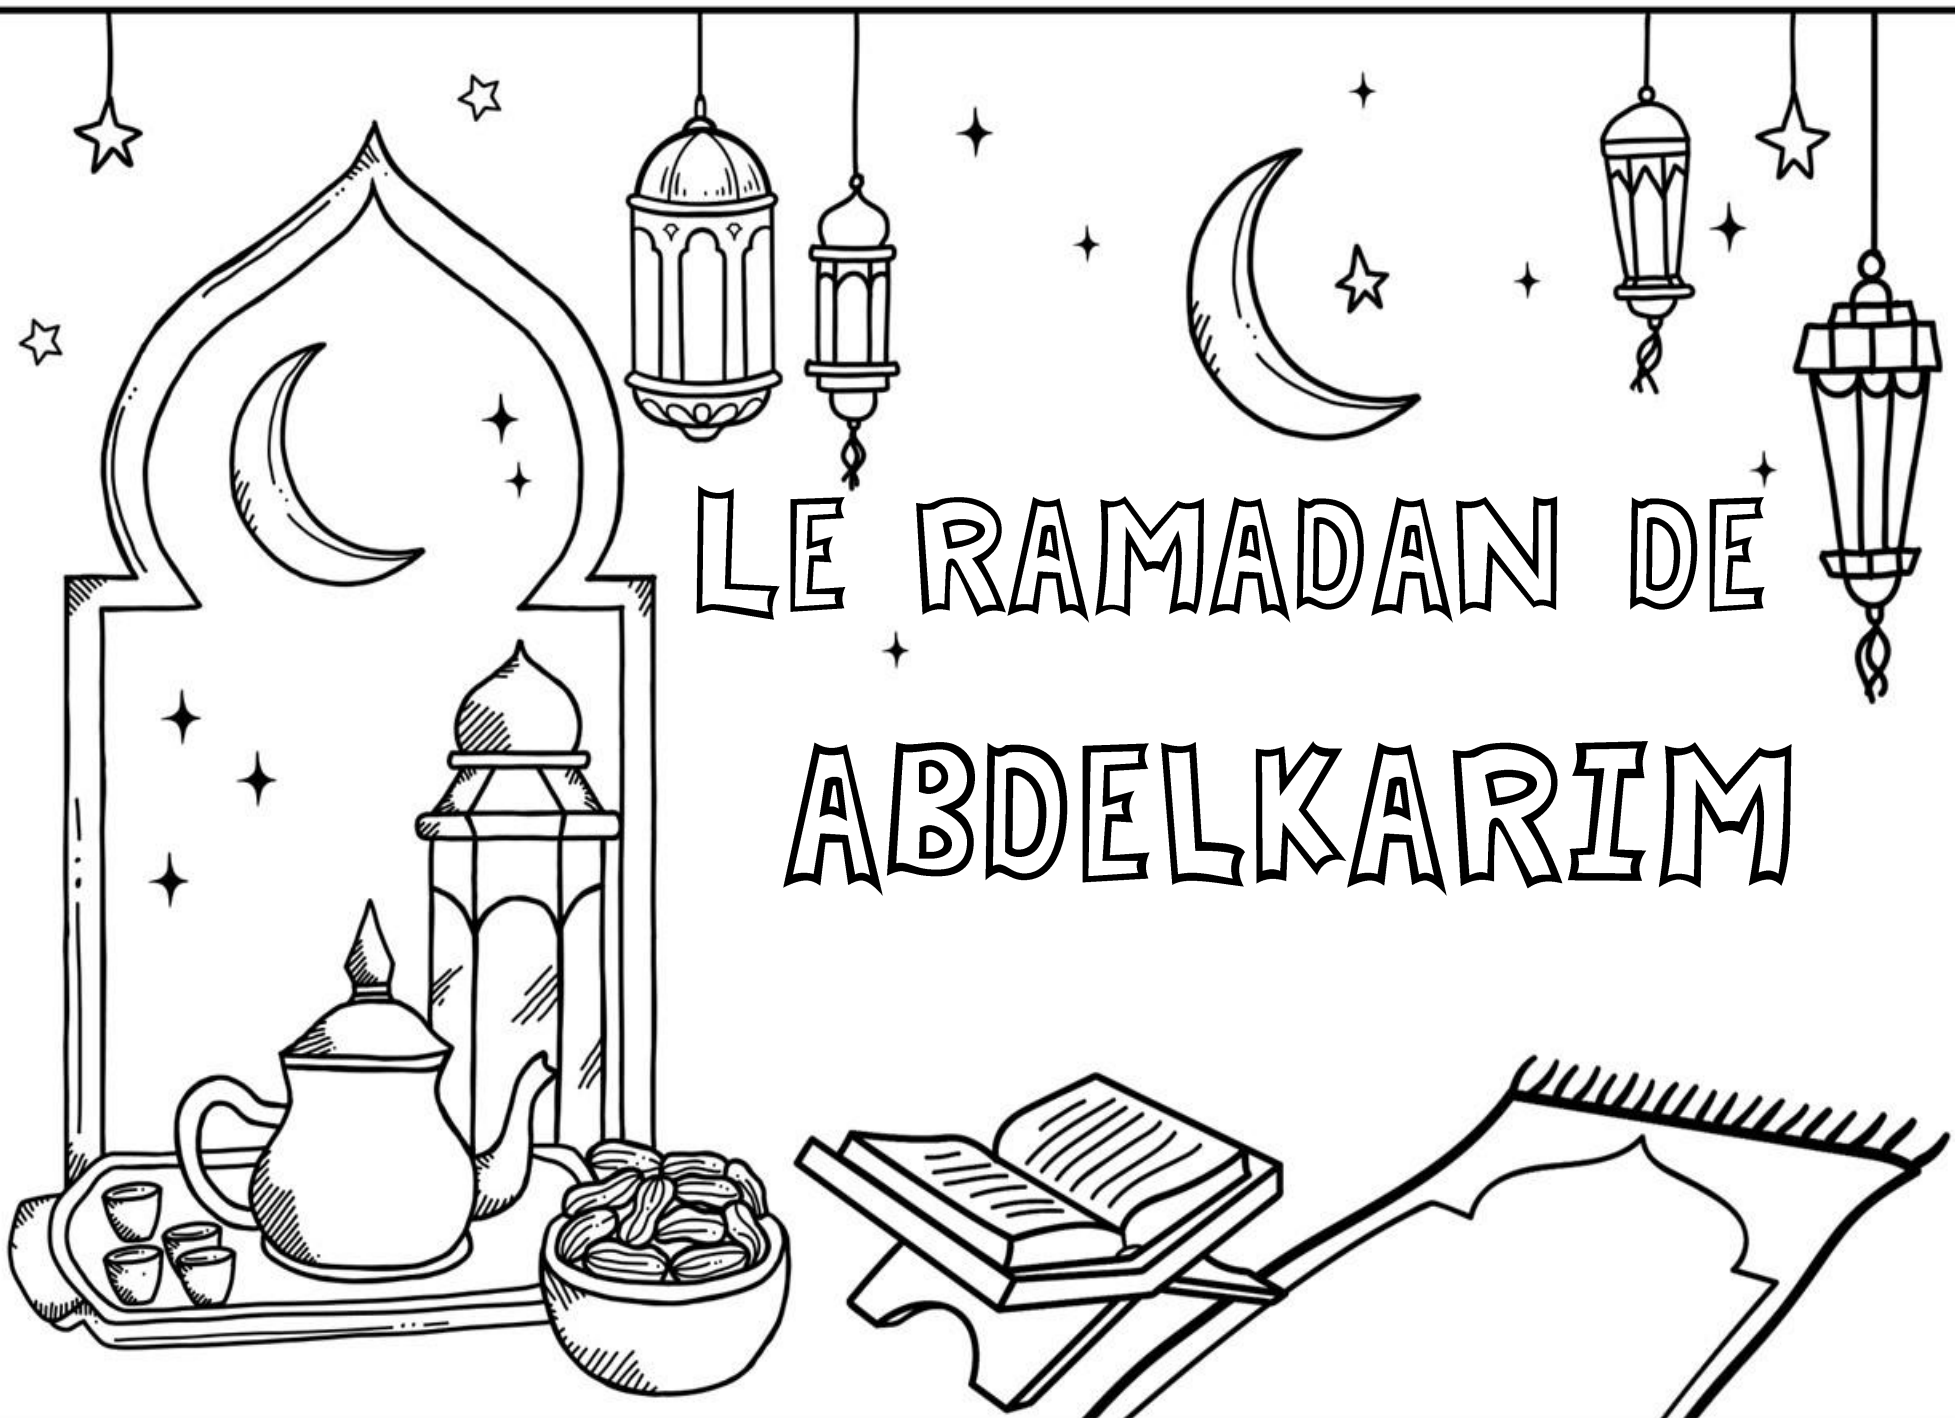 LE RAMADAN DE
ABDELKARIM